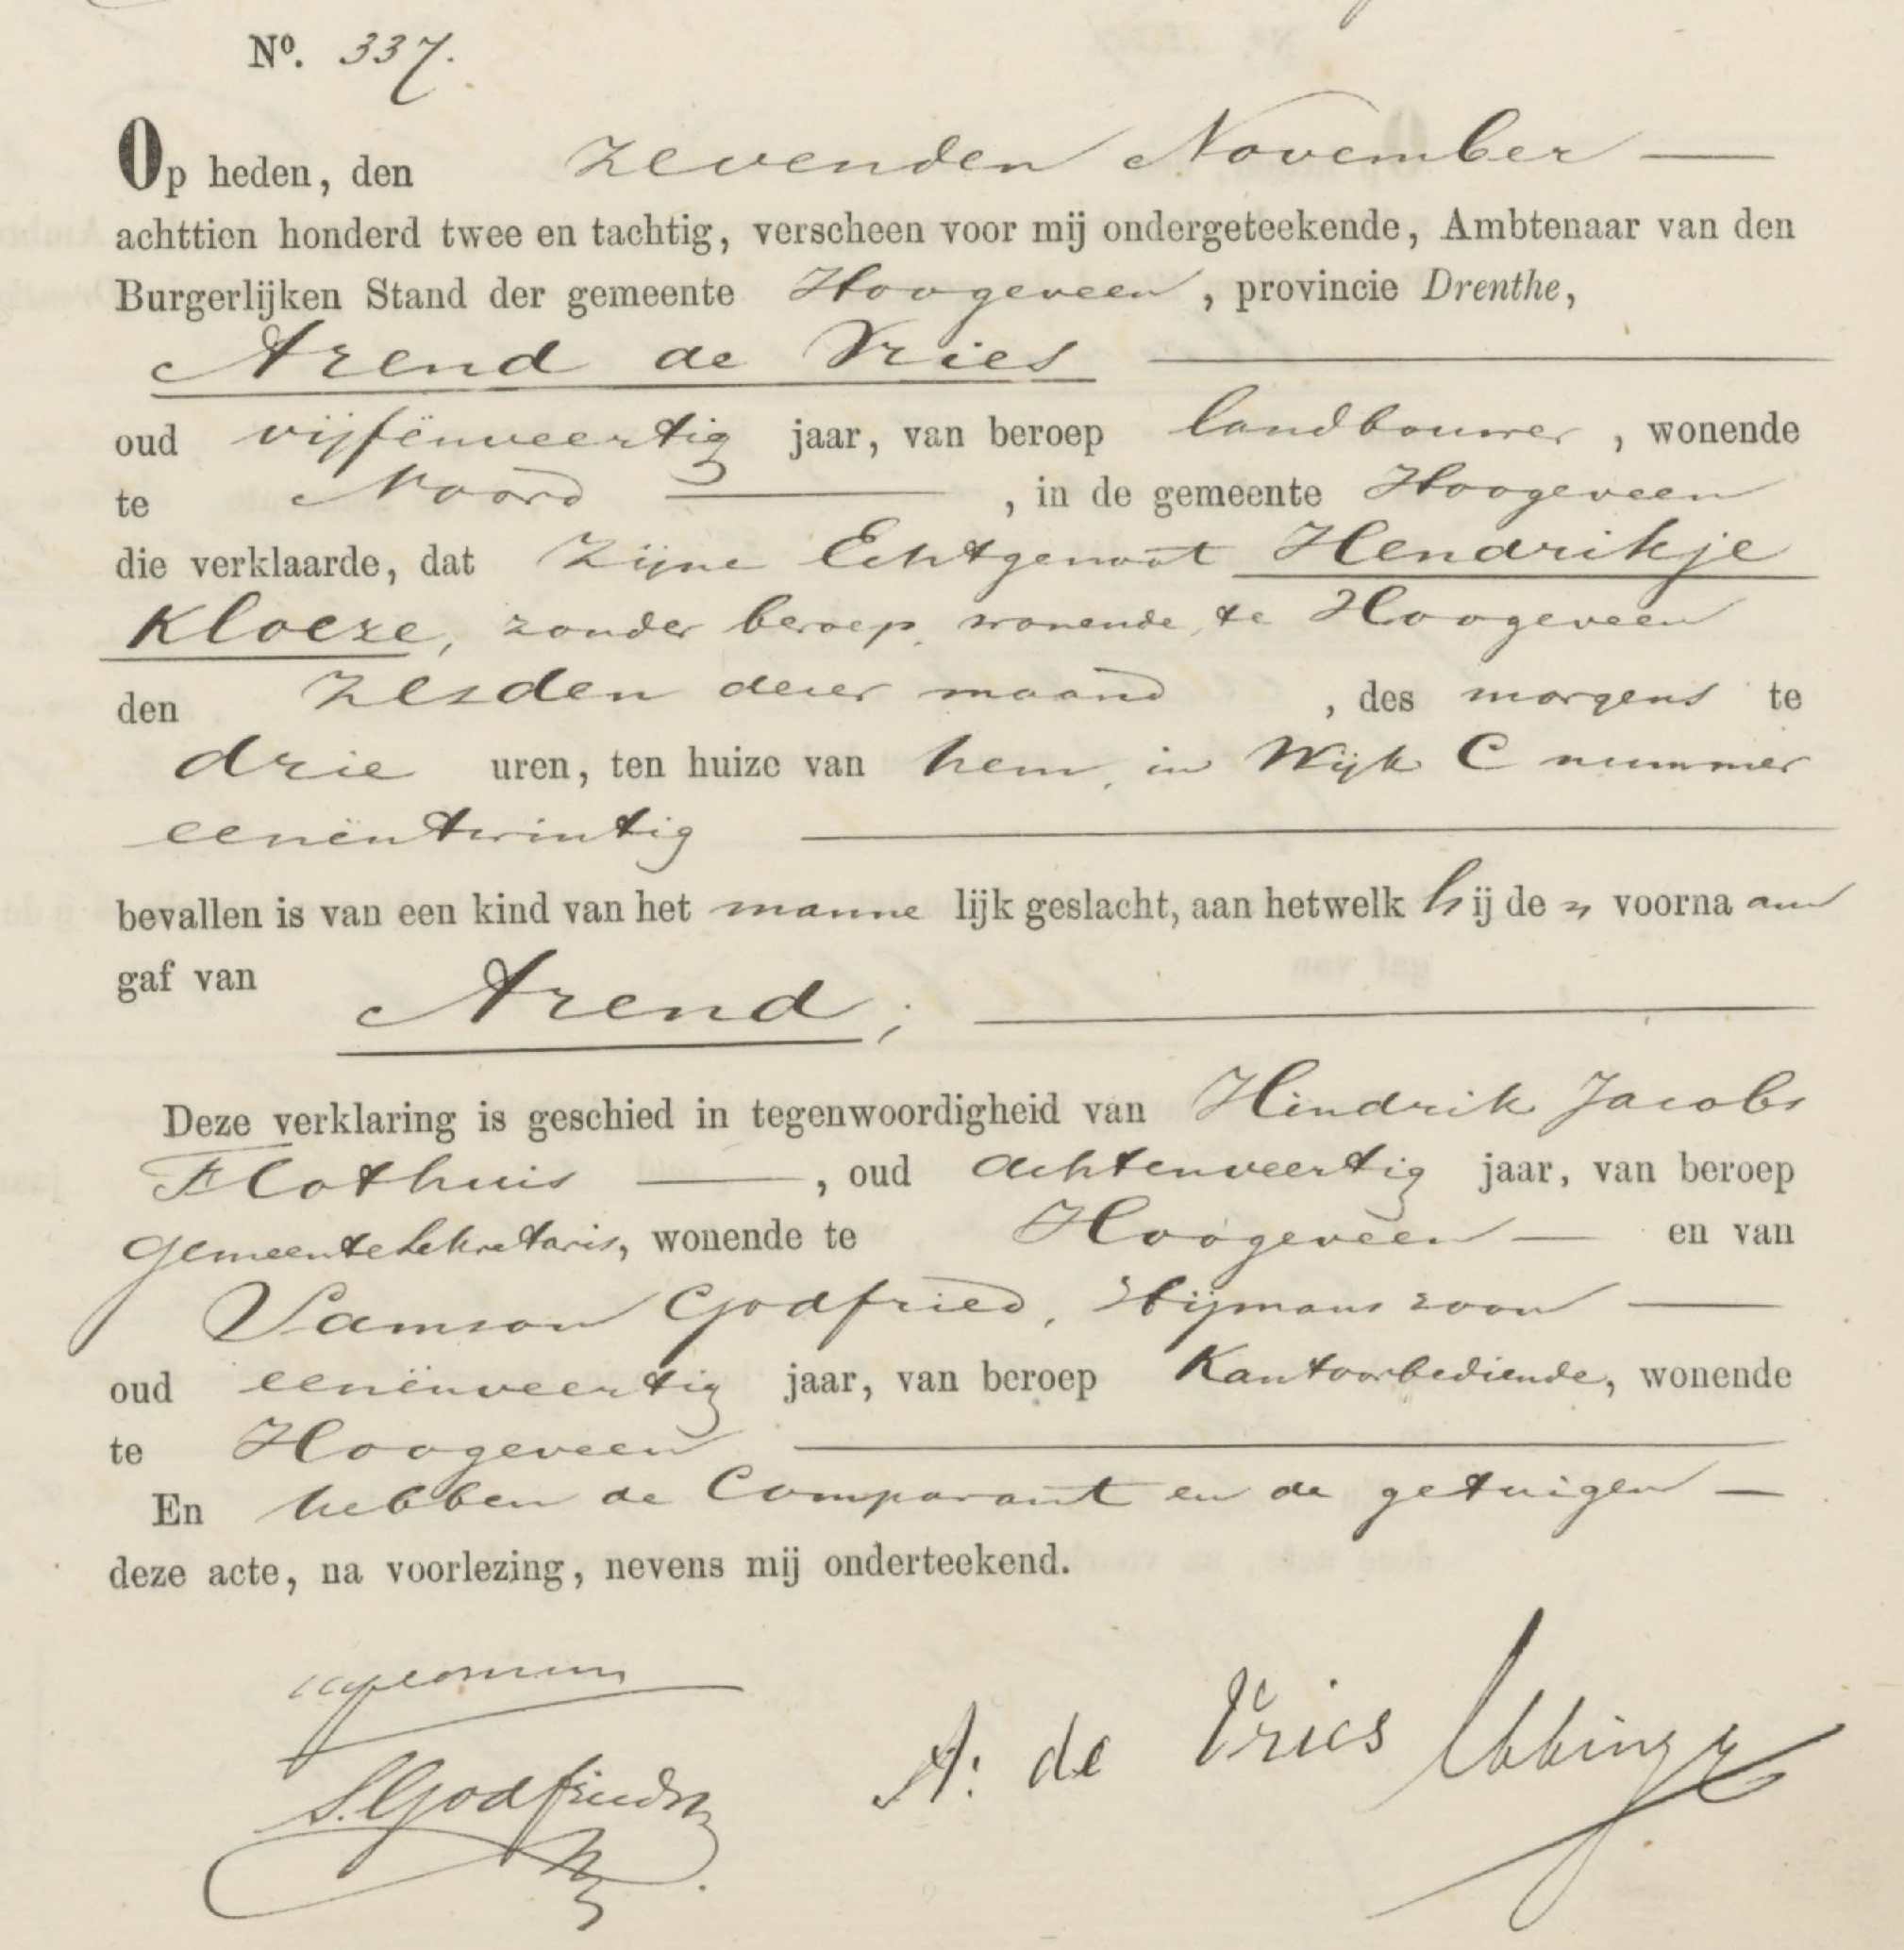 Nº. 337.
Op heden, den zevenden November
achttien honderd twee en tachtig, verscheen voor mij ondergeteekende, Ambtenaar van den
Burgerlijken Stand der gemeente Hoogeveen, provincie Drenthe,
Arend de Vries
oud vijfënveertig jaar, van beroep landbouwer, wonende
te Noord, in de gemeente Hoogeveen
die verklaarde, dat zijne Echtgenoot Hendrikje
Kloeze, zonder beroep, wonende te Hoogeveen
den zesden dezer maand, des morgens te
drie uren, ten huize van hem, in Wijk C nummer
eenëntwintig
bevallen is van een kind van het mannelijk geslacht, aan hetwelk hij den voornaam
gaf van Arend;
Deze verklaring is geschied in tegenwoordigheid van Hindrik Jacobs
Flothuis, oud achtenveertig jaar, van beroep
Gemeentesekretaris, wonende te Hoogeveen en van
Samson Godfried, Hijmans zoon
oud eenënveertig jaar, van beroep Kantoorbediende, wonende
te Hoogeveen
En hebben de Comparant en de getuigen
deze acte, na voorlezing, nevens mij onderteekend.
A: de Vries
S. Godfried